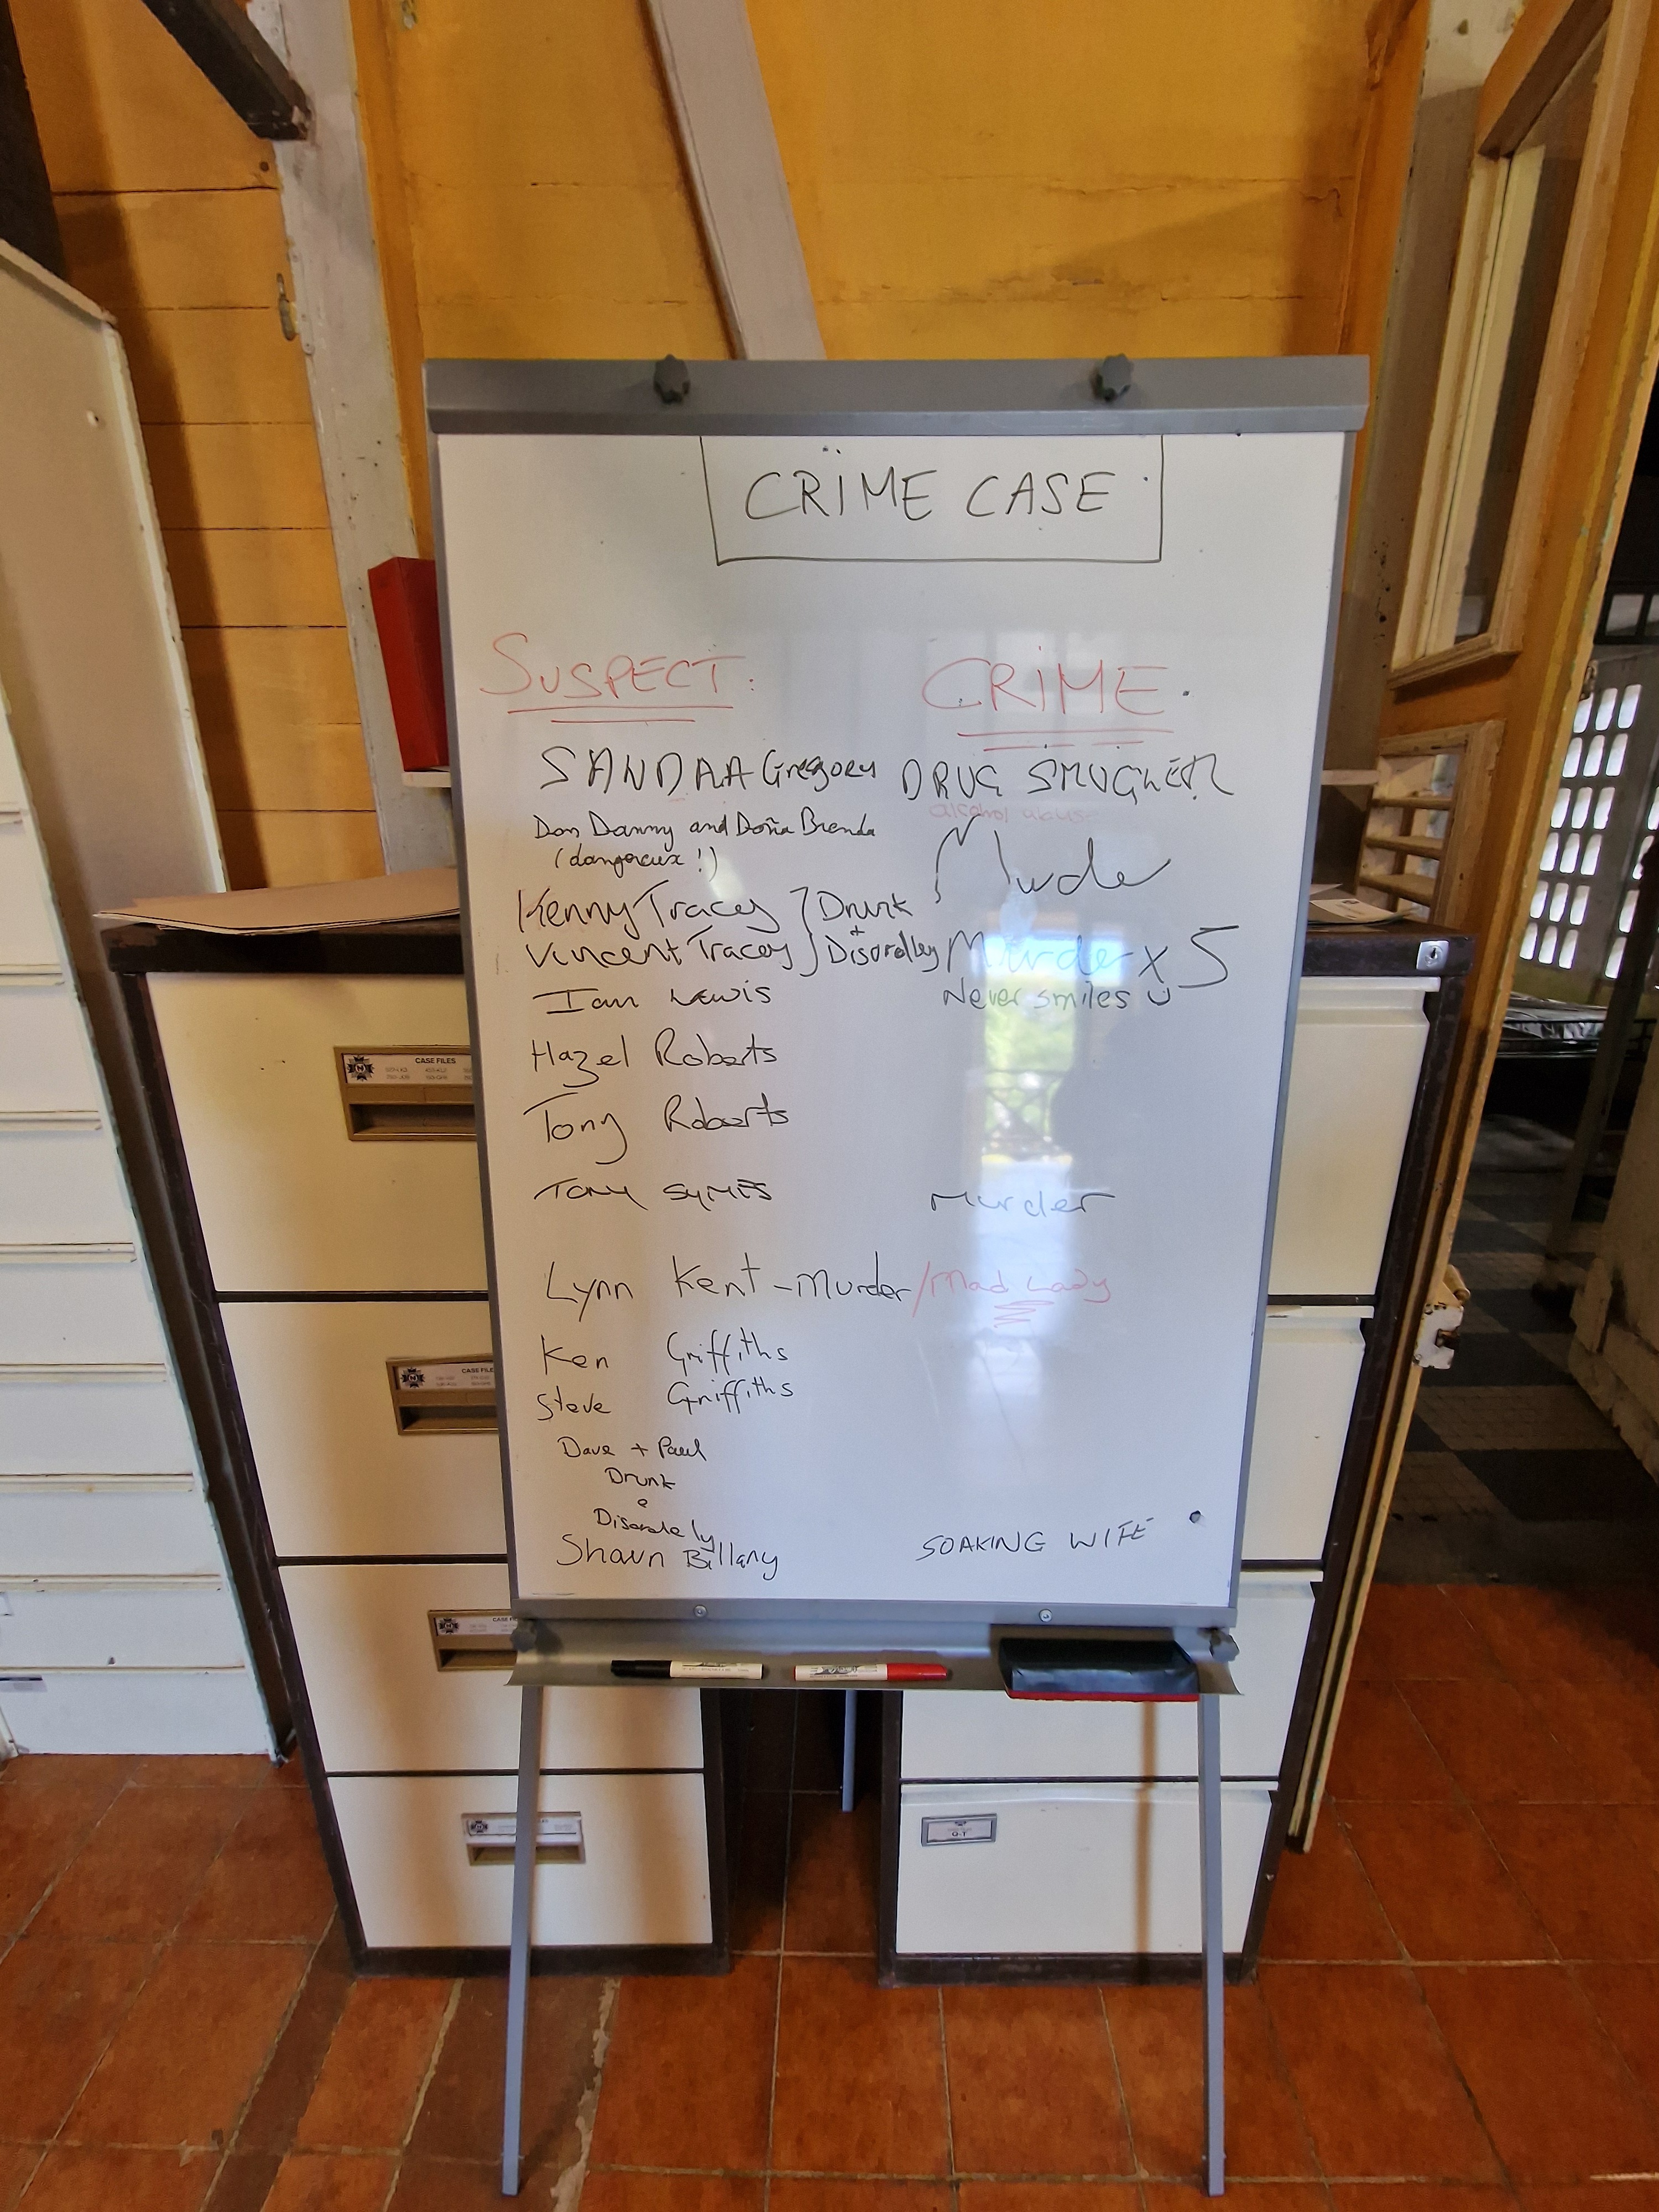 CRIME CASE
SUSPECT: CRIME.
SANDAA Gregory DRUG SMUGHER
alcohol abuse
Don Danny and Doña Brenda
(dangereux !) Murde
Kenny Tracey } Drunk
+
Vincent Tracey } Disordley Murder x 5
Ian Lewis Never smiles
Hazel Roberts
Tony Roberts
TONY SYMES Murder
Lynn Kent - Murder / Mad Lady
Ken Griffiths
Steve Griffiths
Dave + Paul
Drunk
e
Disordely
Shaun Billany SOAKING WIFE
CASE FILES
CASE FILE
CASE FI
O-T